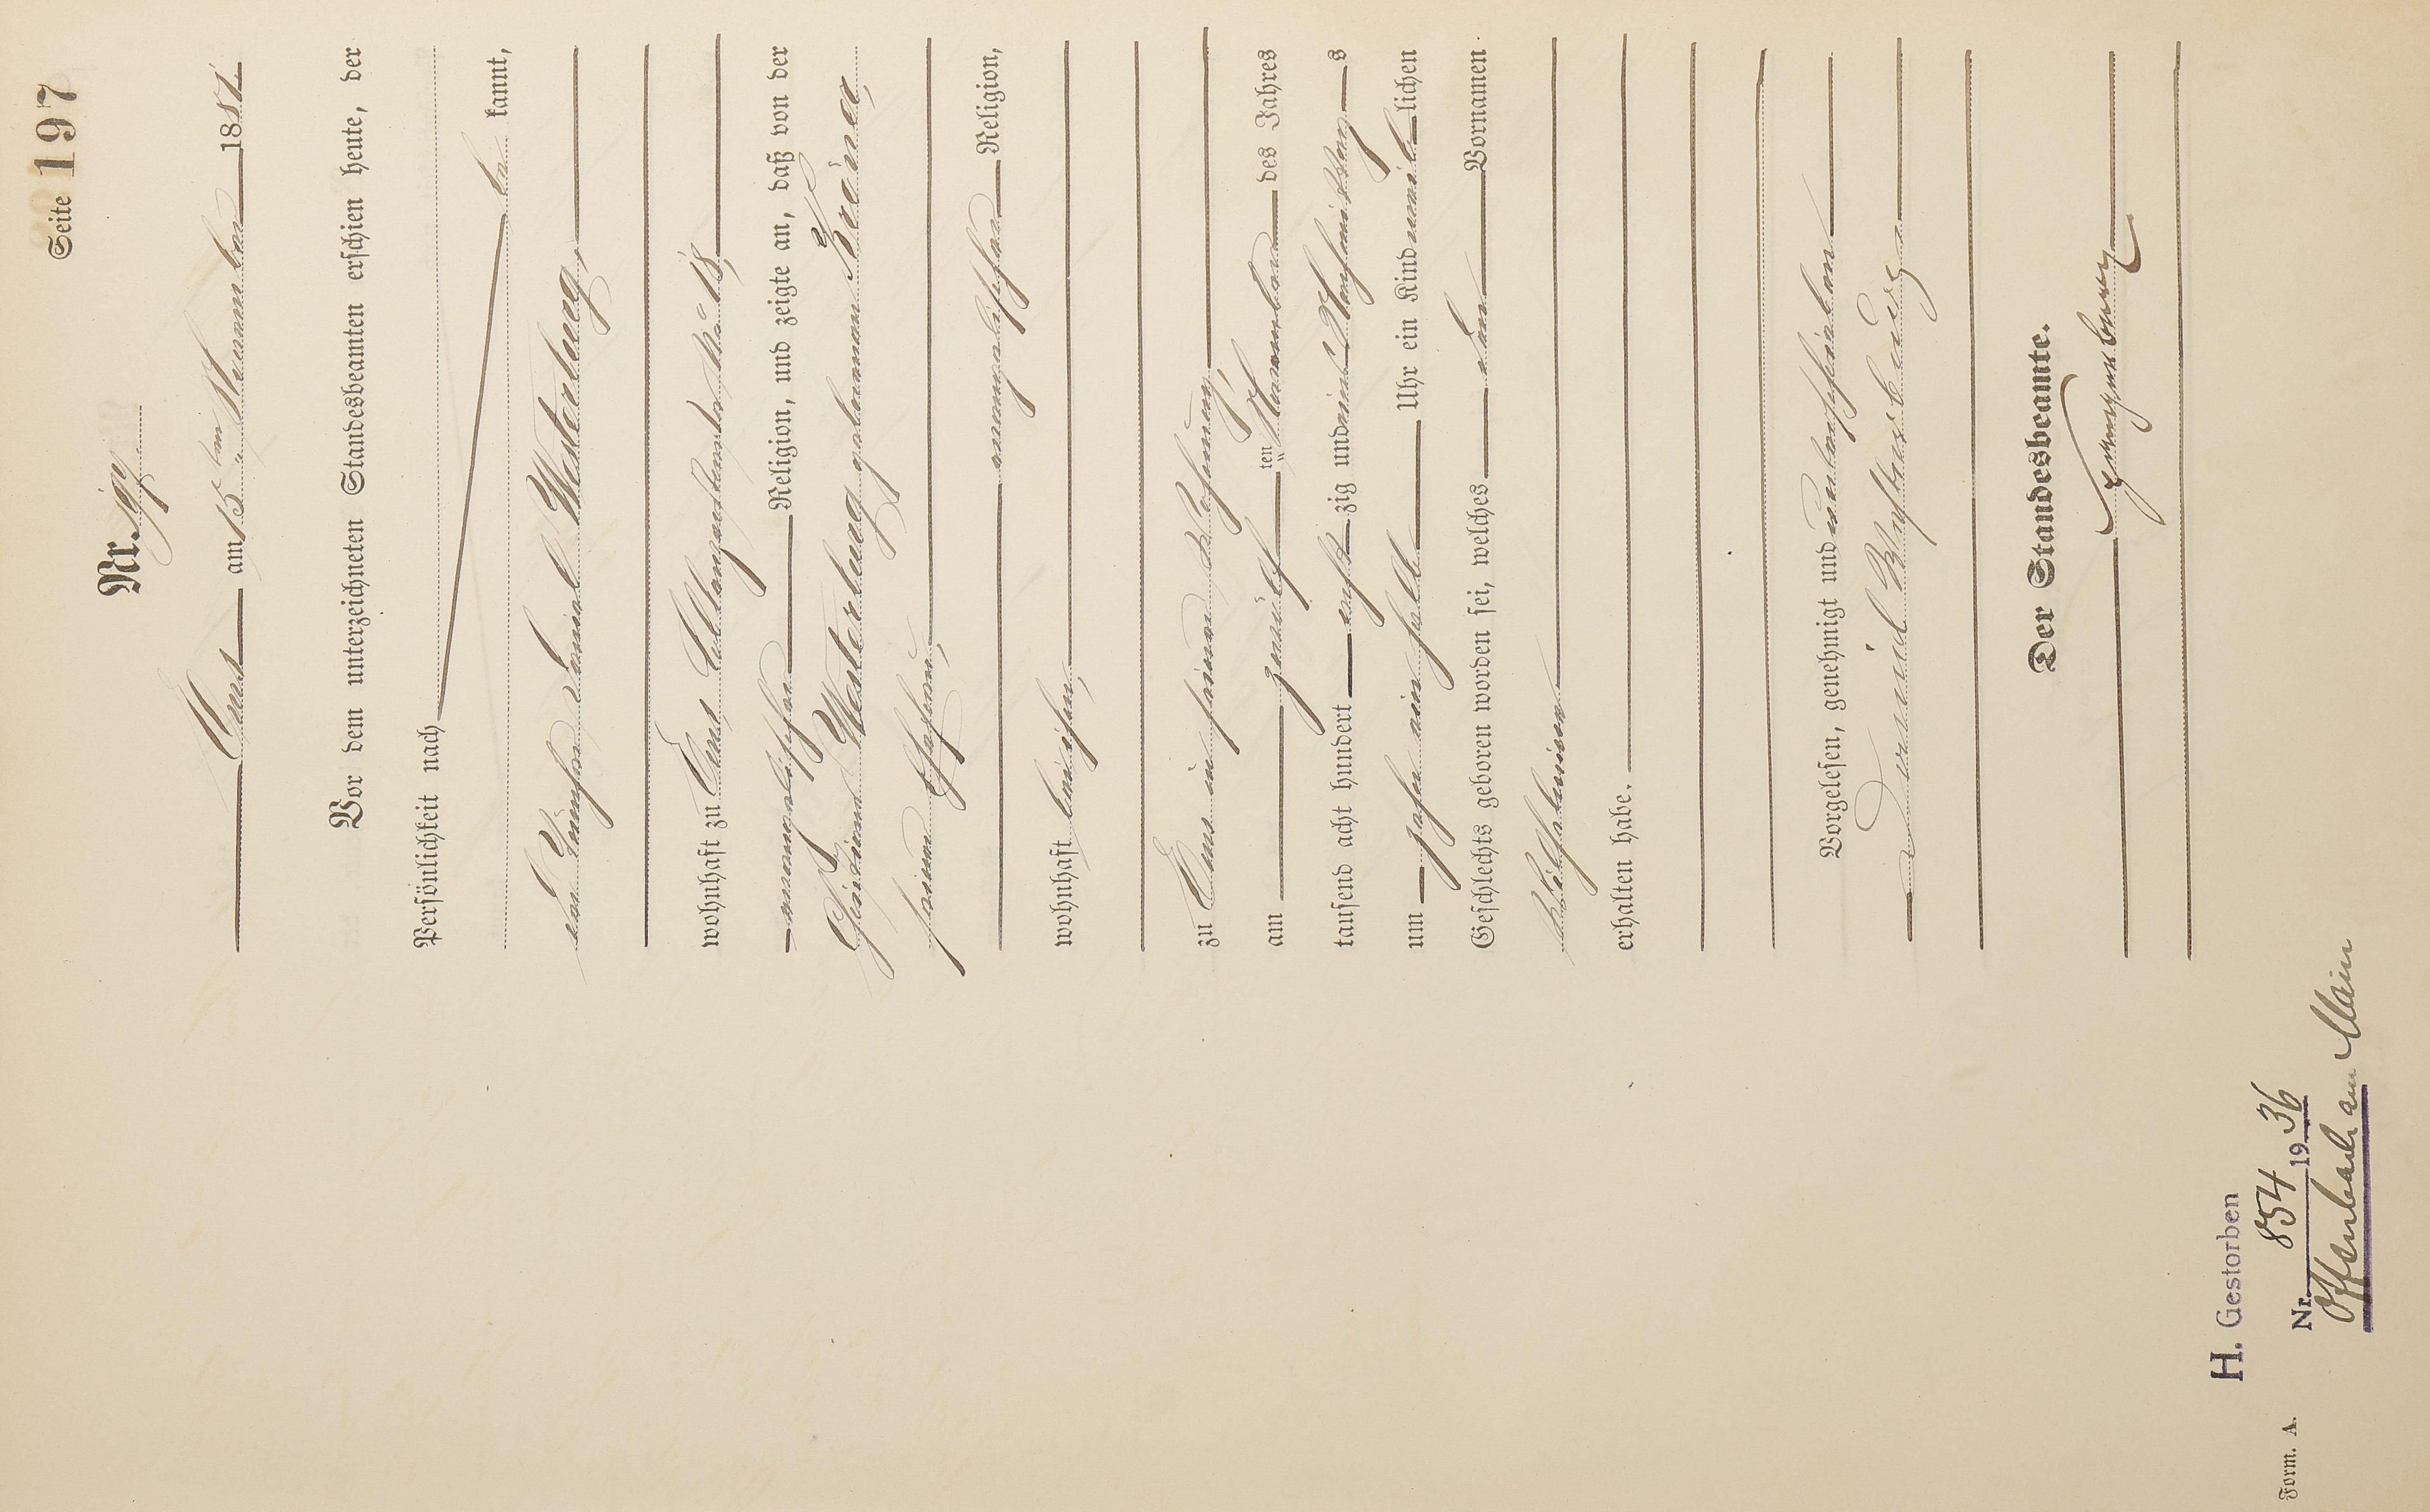 Seite 197
Nr. 197.
Ems am 15ten November 1881.
Vor dem unterzeichneten Standesbeamten erschien heute, der
Persönlichkeit nach
be kannt,
der Daniel Westerburg,
wohnhaft zu Ems, No 18,
evangelischer Religion, und zeigte an, daß von der
Westerburg geborenen Kreiner,
seiner Ehefrau,
evangelischer Religion,
wohnhaft bei ihm,
zu Ems in seiner Wohnung,
am zwölf ten November des Jahres
tausend acht hundert acht zig und eins Nachmittags
um zehn ein halb Uhr ein Kind männlichen
Geschlechts geboren worden sei, welches den Vornamen
erhalten habe.
Vorgelesen, genehmigt und unterschrieben
Daniel Westerburg
Der Standesbeamte.
H. Gestorben
Nr. 854 1936
Offenbach am Main
Form. A.